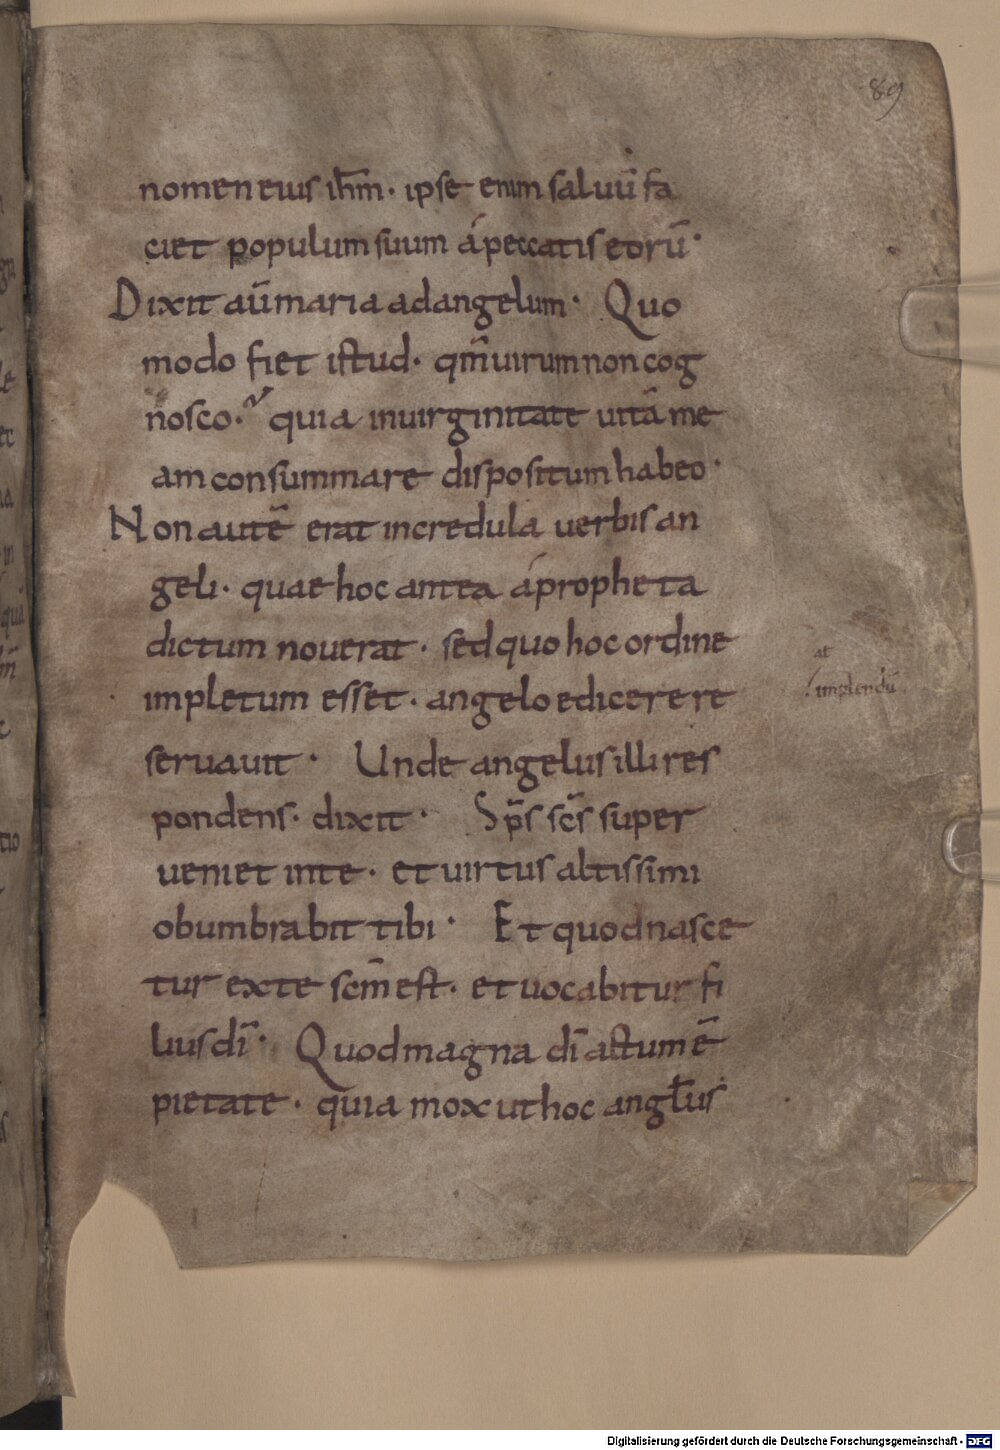 89
nomen eius ihm̄· ipse enim saluū fa
ciet populum suum á peccatis eorū·
Dixit aūt maria ad angelum· Quo
modo fiet istud· qm̄ uirum non cog
nosco· quia in uirginitate uitā me
am consummare dispositum habeo·
Non autē erat incredula uerbis an
geli· quae hoc antea á propheta
dictum nouerat· sed quo hoc ordine
impletum esset· angelo edicere re
seruauit· Unde angelus illi res
pondens· dixit· Sp̄s sc̄s super
ueniet in te· et uirtus altissimi
obumbrabit tibi· Et quod nasce
tur ex te scm̄ est· et uocabitur fi
lius dī· Quod magna dī actum ē
pietate· quia mox ut hoc angl̄us
at
implendū
Digitalisierung gefördert durch die Deutsche Forschungsgemeinschaft - DFG